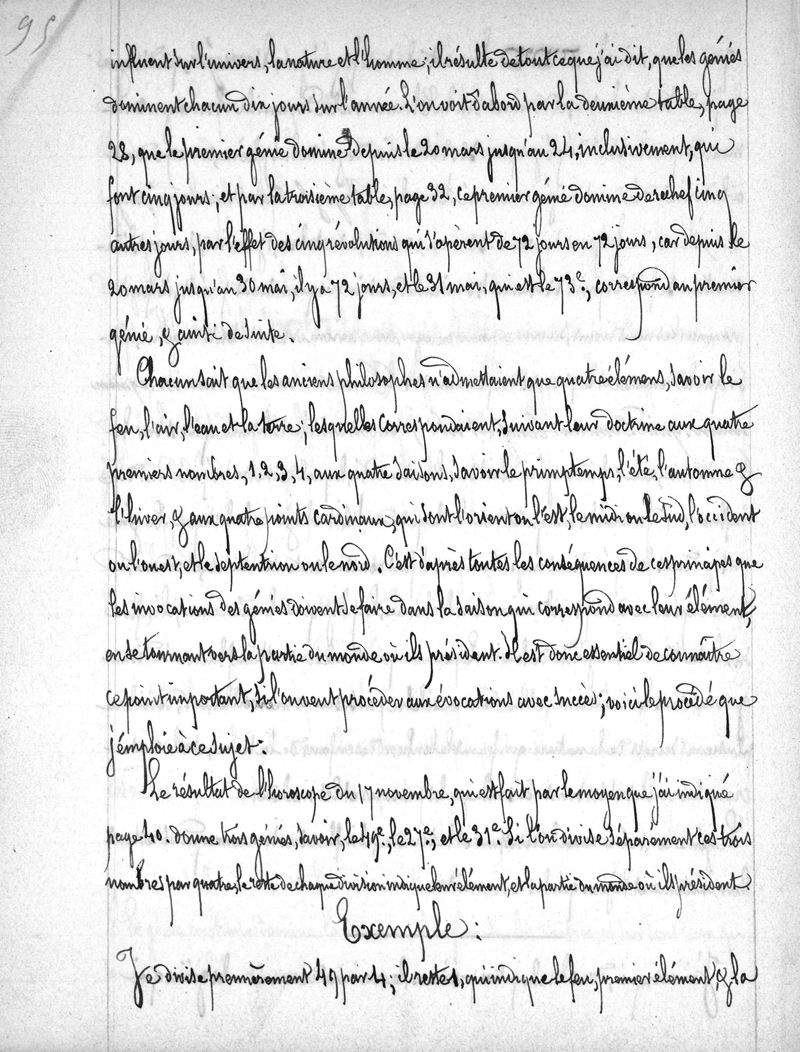 95
influent sur l'univers, la nature et l'homme; il résulte de tout ce que j'ai dit, que les génies
dominent chacun dix jours sur l'année. L'on voit d'abord par la deuxième table, page
28, que le premier génie domine depuis le 20 mars jusqu'au 24, inclusivement, qui
font cinq jours; et par la troisième table, page 32, ce premier génie domine derechef cinq
autres jours, par l'effet des cinq révolutions qui s'opèrent de 72 jours en 72 jours, car depuis le
20 mars jusqu'au 30 mai, il y a 72 jours, et le 31 mai, qui est le 73e, correspond au premier
génie, & ainsi de suite.
Chacun sait que les anciens philosophes n'admettaient que quatre élémens, savoir le
feu, l'air, l'eau et la terre; lesquelles correspondaient, suivant leur doctrine aux quatre
premiers nombres, 1, 2, 3, 4, aux quatre saisons, savoir le primptemps, l'été, l'automne &
l'hiver, & aux quatre points cardinaux, qui sont l'orient ou l'est, le midi ou le sud, l'occident
ou l'ouest, et le septentrion ou le nord. C'est d'après toutes les conséquences de ces principes que
les invocations des génies doivent se faire dans la saison qui correspond avec leur élément,
en se tournant vers la partie du monde où ils président. Il est donc essentiel de connaître
ce point important, si l'on veut procéder aux évocations avec succès; voici le procédé que
j'emploie à ce sujet:
Le résultat de l'horoscope du 17 novembre, qui est fait par le moyen que j'ai indiqué
page 40. donne trois génies, savoir, le 49e, le 27e, et le 31e. Si l'on divise séparément ces trois
nombres par quatre, le reste de chaque division indique leur élément, et la partie du monde où ils président
Exemple:
Je divise premièrement 49 par 4, il reste 1, qui indique le feu, premier élément, & la